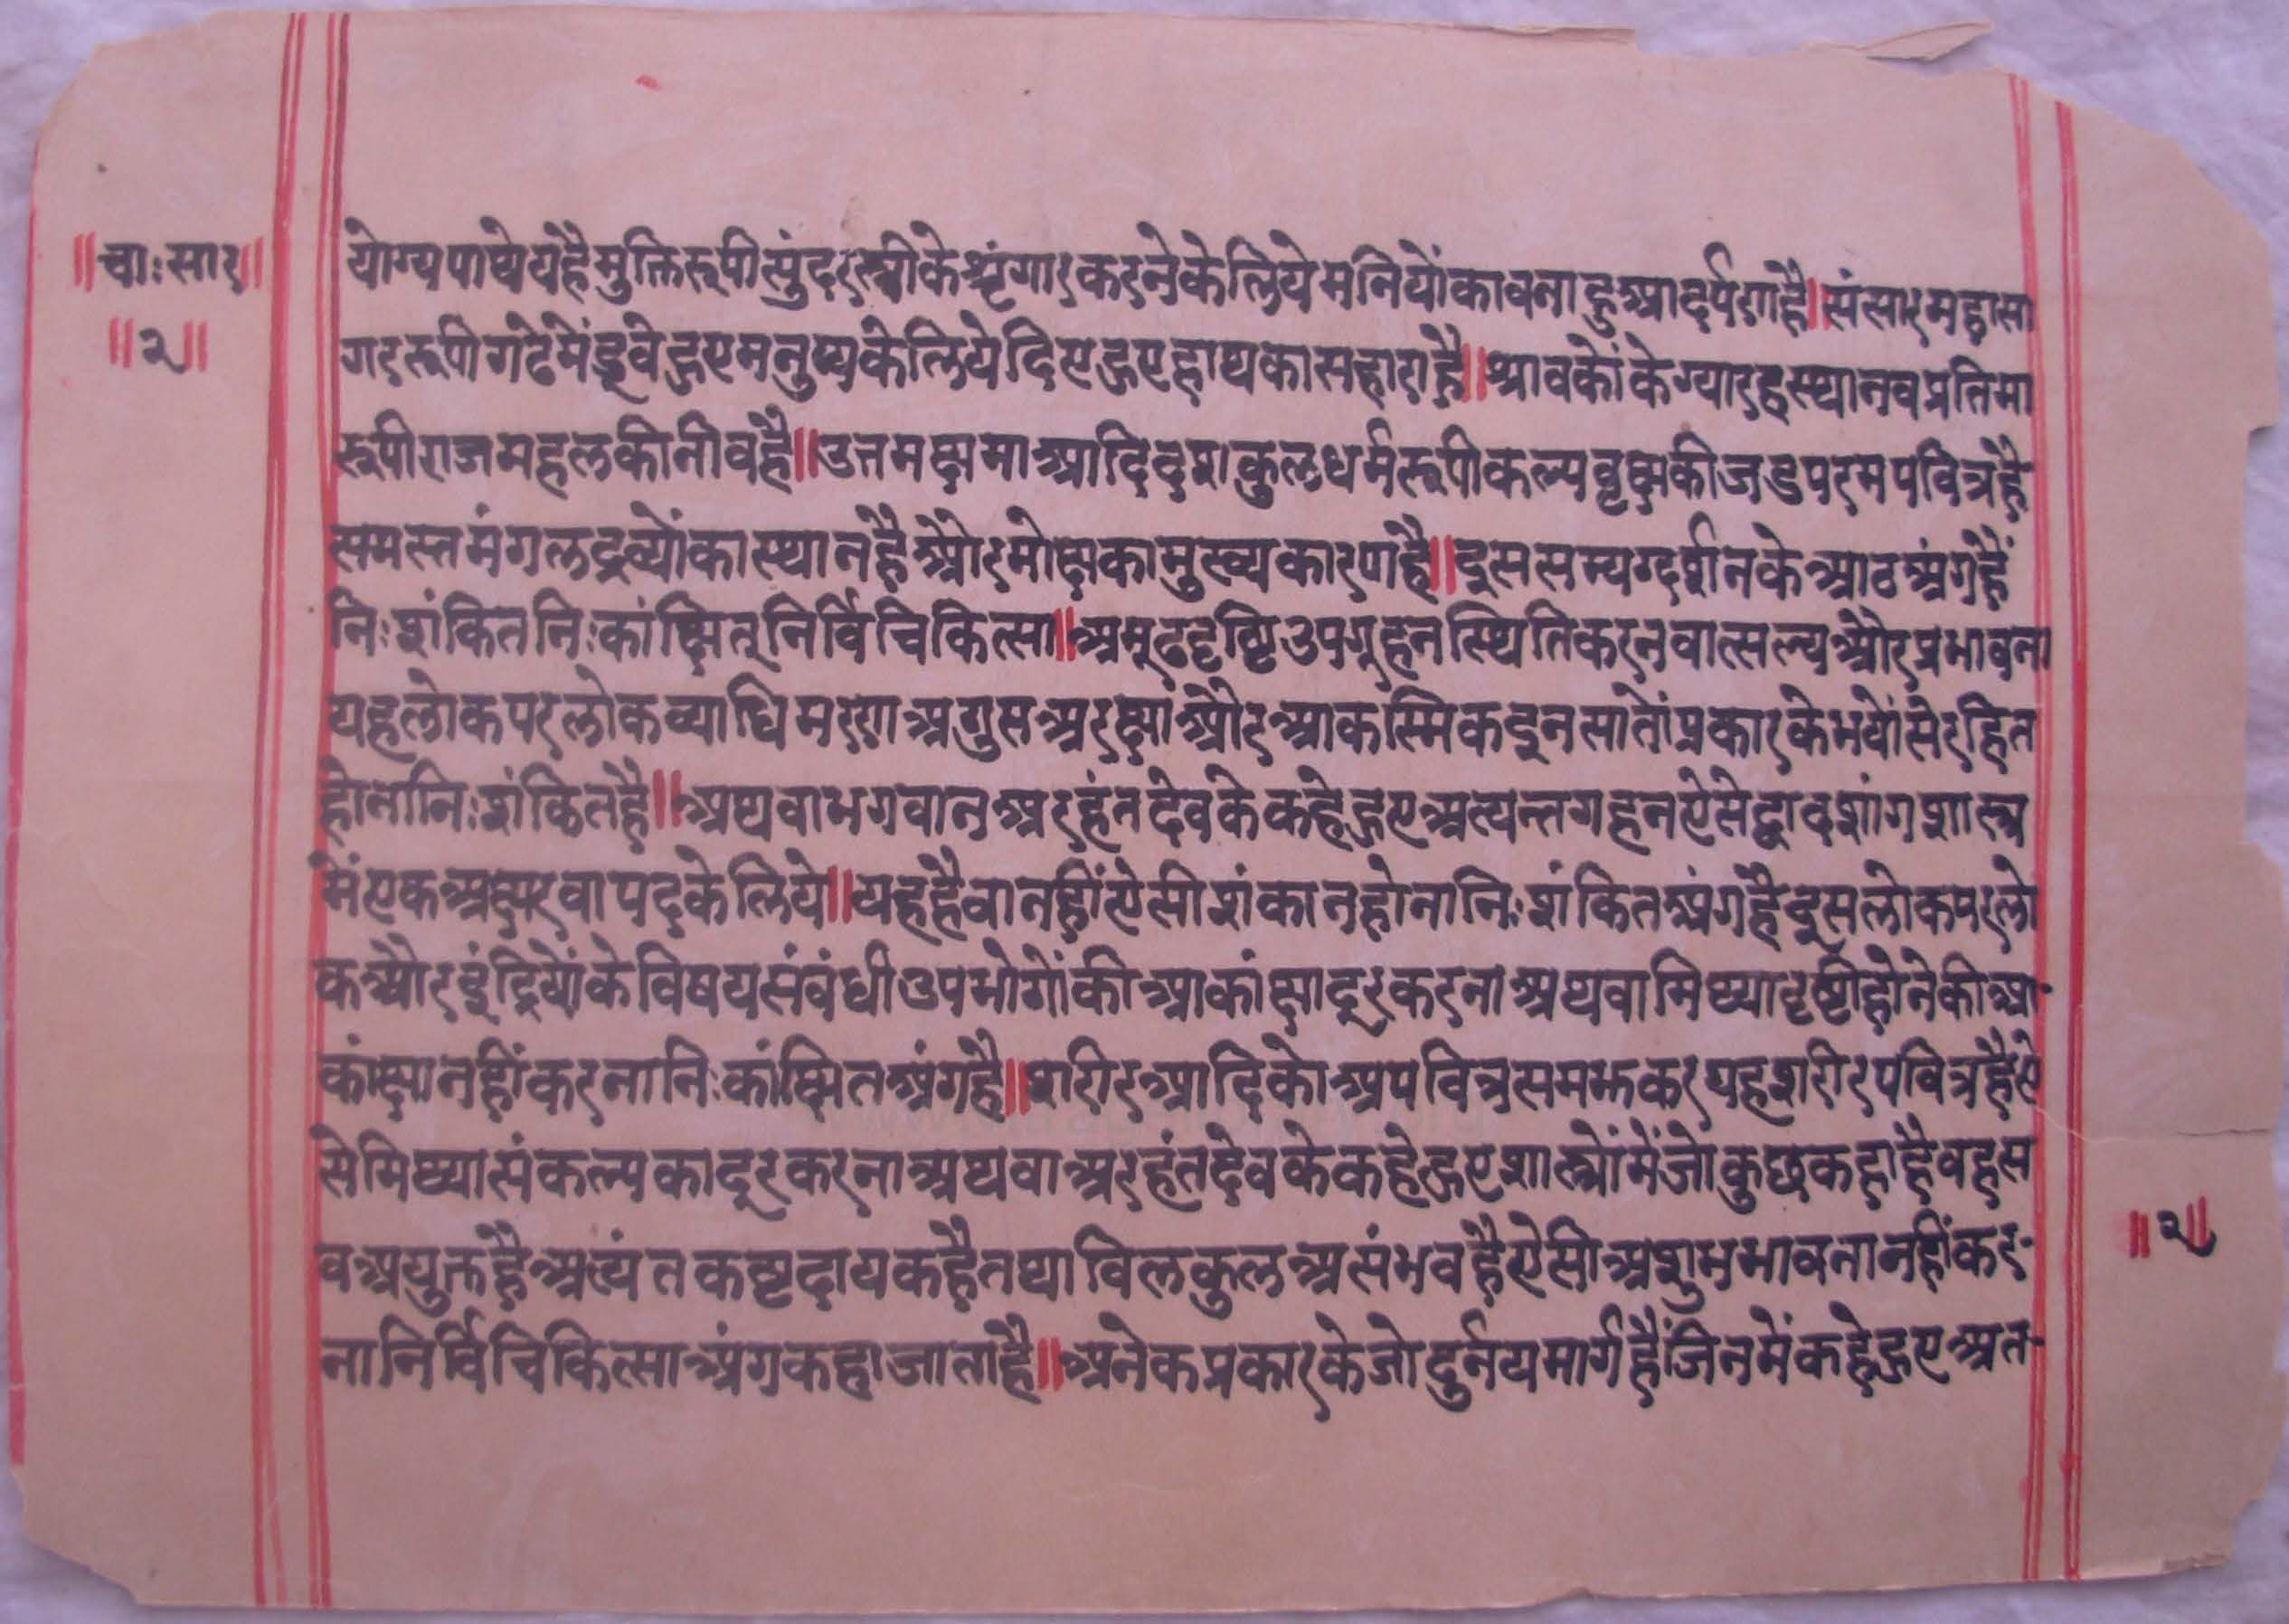 ॥चाःसार॥
॥२॥
योग्यपाथेयहैमुक्तिरूपीसुंदरस्त्रीकेशृंगारकरनेकेलियेमनियोंकावनाहुआदर्पणहै॥संसारमहासा
गररूपीगढेमेंडूवेहुएमनुष्यकेलियेदिएहुएहाथकासहाराहै॥श्रावकोंकेग्यारहस्थानवप्रतिमा
रूपीराजमहलकीनीवहै॥उत्तमक्षमाआदिदशकुलधर्मरूपीकल्पवृक्षकीजडपरमपवित्रहै
समस्तमंगलद्रव्योंकास्थानहैऔरमोक्षकामुख्यकारणहै॥इससम्यग्दर्शनकेआठअंगहैं
निःशंकितनिःकांक्षितनिर्विचिकित्सा॥अमूढदृष्टिउपगूहनस्थितिकरनवात्सल्यऔरप्रभावना
यहलोकपरलोकव्याधिमरणअगुप्तअरक्षाऔरआकस्मिकइनसातोंप्रकारकेभयोंसेरहित
होनानिःशंकितहै॥अथवाभगवानअरहंतदेवकेकहेहुएअत्यन्तगहनऐसेद्वादशांगशास्त्र
मेंएकअक्षरवापदकेलिये॥यहहैवानहींऐसीशंकानहोनानिःशंकितअंगहैइसलोकपरलो
कऔरइंद्रियोंकेविषयसंवंधीउपभोगोंकीआकांक्षादूरकरनाअथवामिथ्यादृष्टीहोनेकीआ-
कांक्षानहींकरनानिःकांक्षितअंगहै॥शरीरआदिकोअपवित्रसमझकरयहशरीरपवित्रहैऐ
सेमिथ्यासंकल्पकादूरकरनाअथवाअरहंतदेवकेकहेहुएशास्त्रोंमेंजोकुछकहाहैवहस
वअयुक्तहैअत्यंतकष्टदायकहैतथाविलकुलअसंभवहैऐसीअशुभभावनानहींकर-
नानिर्विचिकित्साअंगकहाजाताहै॥अनेकप्रकारकेजोदुर्नयमार्गहैंजिनमेंकहेहुएअत-
॥२॥